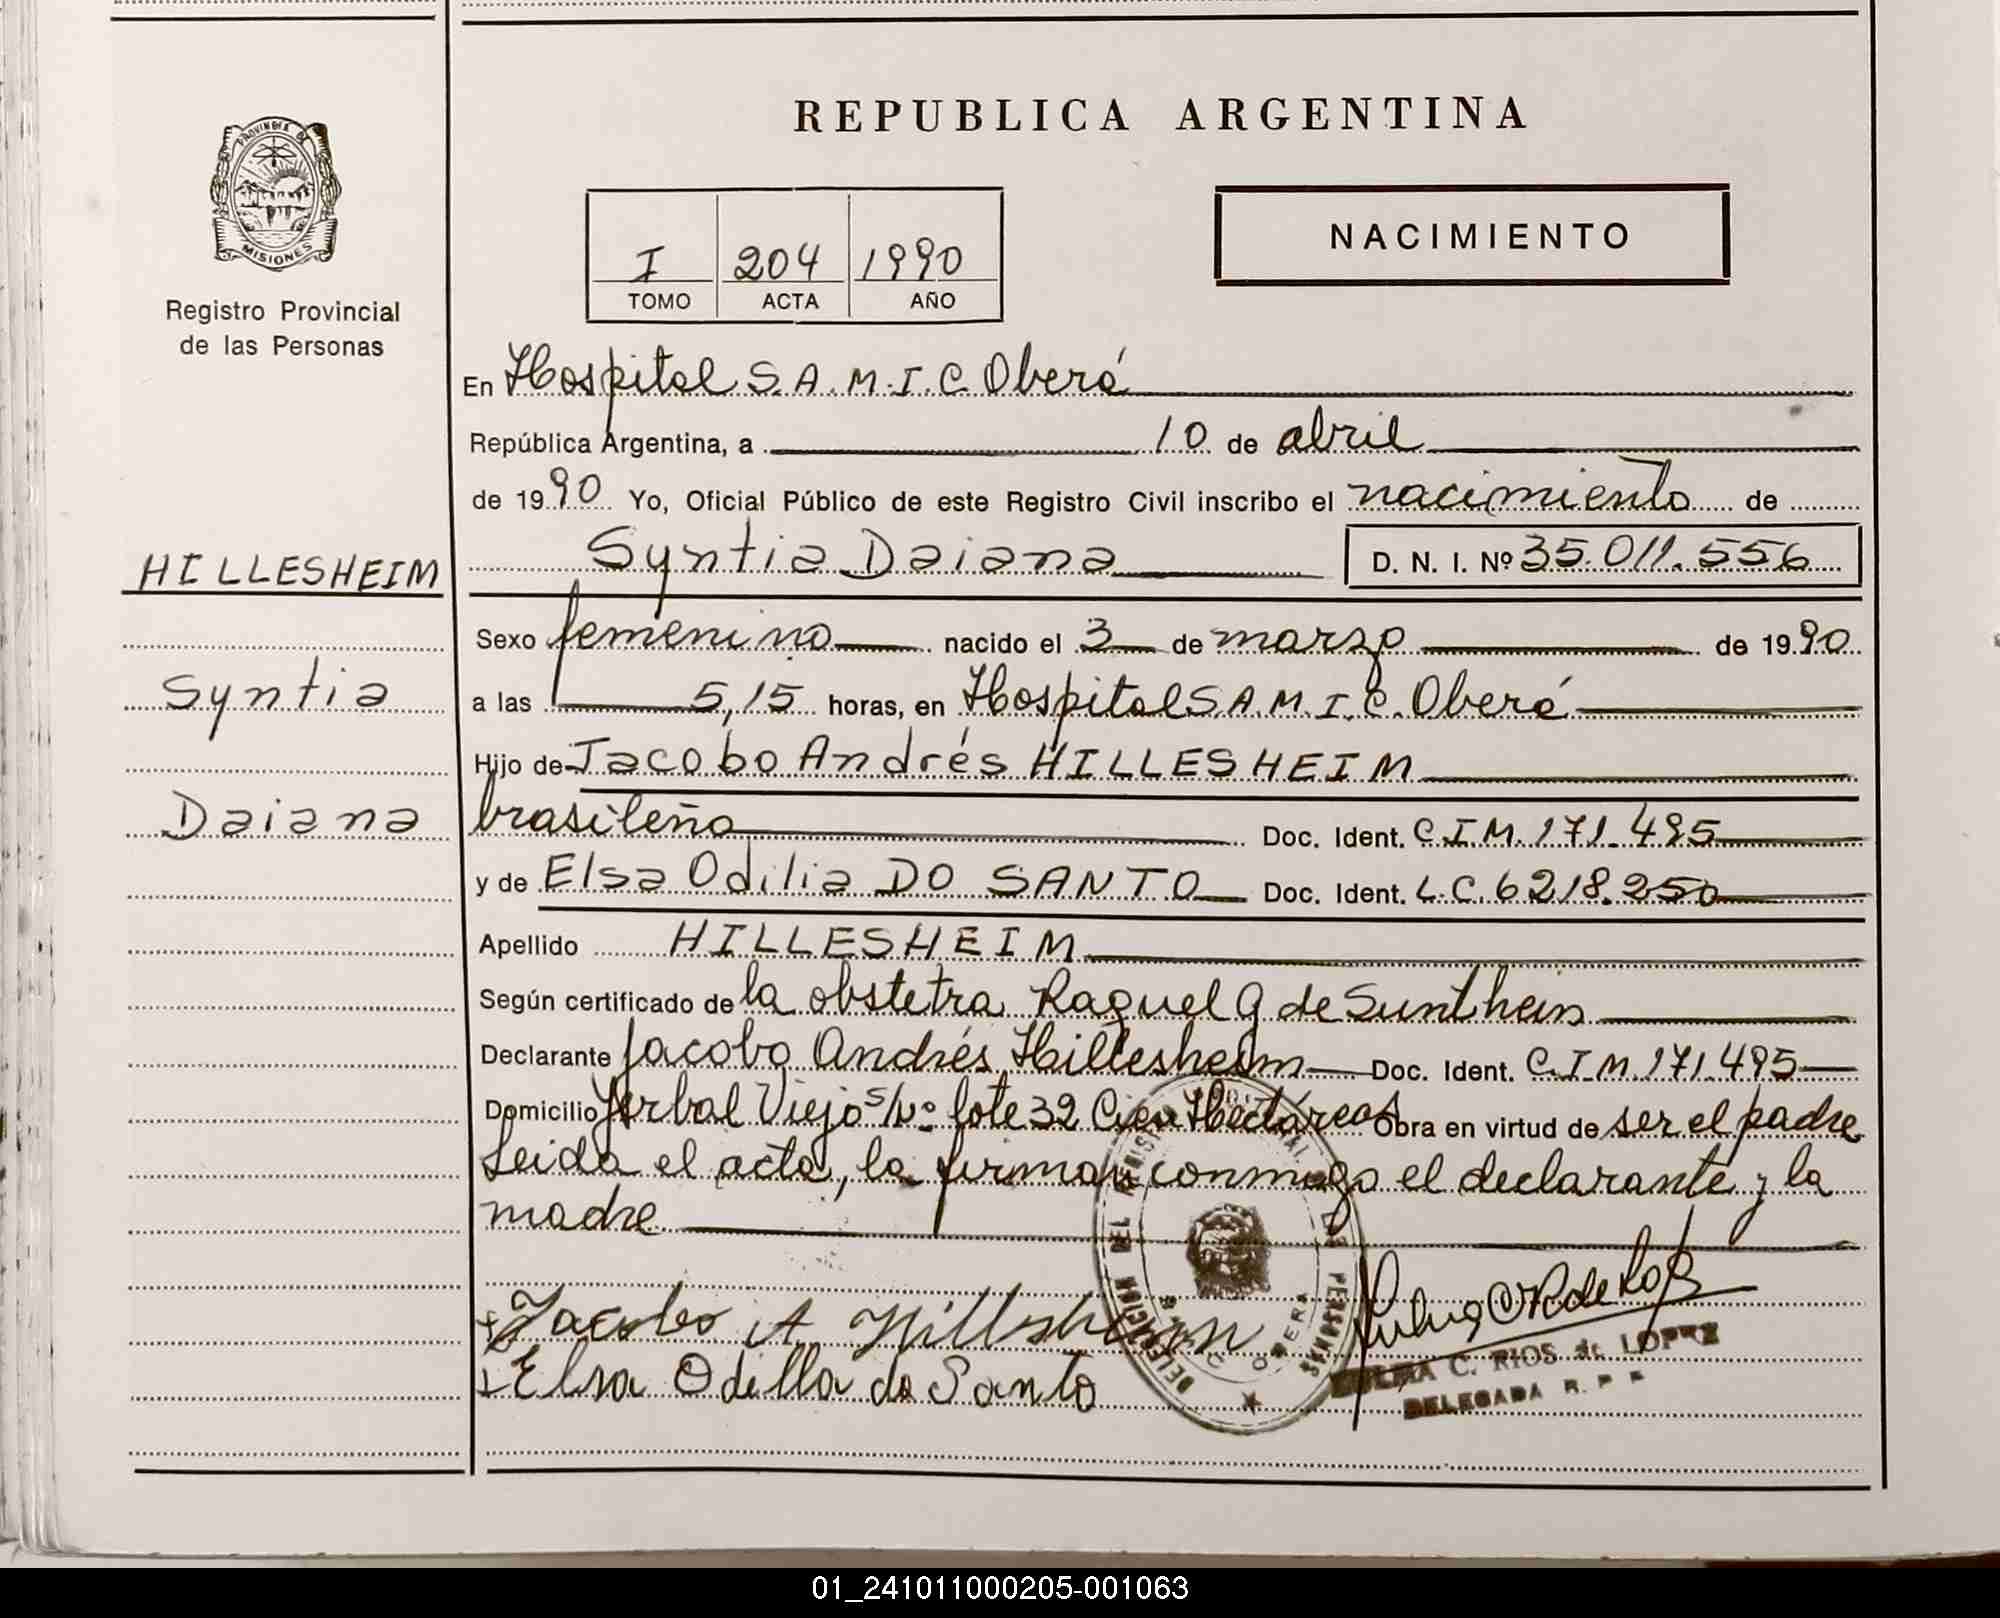 REPUBLICA ARGENTINA
PROVINCIA D
MISIONES
Registro Provincial
de las Personas
NACIMIENTO
I 204 1990
TOMO ACTA AÑO
En Hospital S.A.M.I.C. Oberá
República Argentina, a 10 de abril
de 1990 Yo, Oficial Público de este Registro Civil inscribo el nacimiento de
Syntia Daiana D. N. I. Nº 35.011.556
HILLESHEIM
Syntia
Daiana
Sexo femenino nacido el 3 de marzo de 1990
a las 5,15 horas, en Hospital S.A.M.I.C. Oberá
Hijo de Jacobo Andrés HILLESHEIM
brasileño Doc. Ident. C.I.M. 171.495
y de Elsa Odilia DO SANTO Doc. Ident. L.C. 6218.250
Apellido HILLESHEIM
Según certificado de la obstetra Raquel G de Sunthein
Declarante Jacobo Andrés Hillesheim Doc. Ident. C.I.M. 171.495
Domicilio Yerbal Viejo s/Nº lote 32 Cien Hectáreas Obra en virtud de ser el padre
Leida el acta, la firman conmigo el declarante y la
madre
Jacobo A Hillesheim
Elsa Odilla do Santo
C. RIOS de LOPEZ
DELEGADA R. P. P.